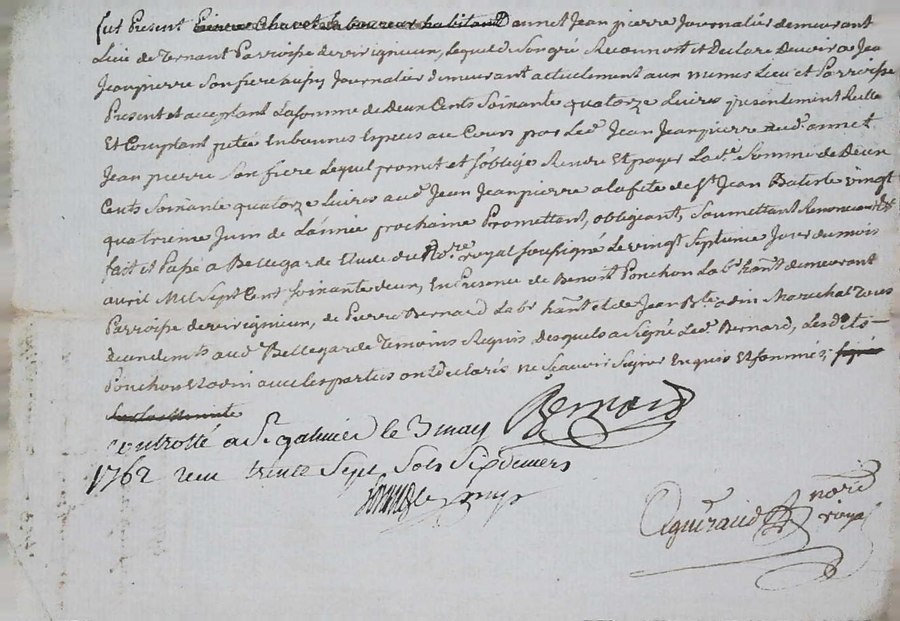 fut Présent Pierre Chavot Laboureur habitant annet Jean pierre Journalier demeurant
Lieu de Ternant Parroisse de virignieux, Lequel de Son gré Reconnoit et declare devoir a Jean
Jeanpierre Son frere aussy Journalier demeurant actuelement aux mêmes Lieu et Parroisse
Present et acceptant La Somme de Deux Cents Soixante quatorze Livres presentement Reelle
Et Comptant pretée En bonnes Especes au Cours par Led. Jean Jeanpierre aud. annet
Jean pierre Son frere Lequel promet et s'oblige Rendre Et payer Lad.e Somme de Deux
Cents Soixante quatorze Livres aud. Jean Jeanpierre a la fete de St. Jean Batiste vingt
quatrieme Juin de L'année prochaine Promettant, obligeant, Soumettant Renonceant &a
fait et Passé a Bellegarde Etude du No.re royal Soussigné Le vingt Septieme Jour du mois
avril Mil Sept Cent Soixante deux, En Presence de Benoit Ponchon Lab.r ha.nt demeurant
Parroisse de virignieux, de Pierre Bernard Lab.r ha.nt et de Jean B.te Marechal Tous
deux aud. Bellegarde Temoins Requis desquels a Signé Led. Bernard, Lesdits
Ponchon et avec Les parties ont declarés ne Sçavoir Signer Enquis Et Sommés;
Sur La Minute
Controllé a St. galmier le 3 may Bernard
1762 reçu trente Sept Sols Six deniers
aguiraud no.re
royal